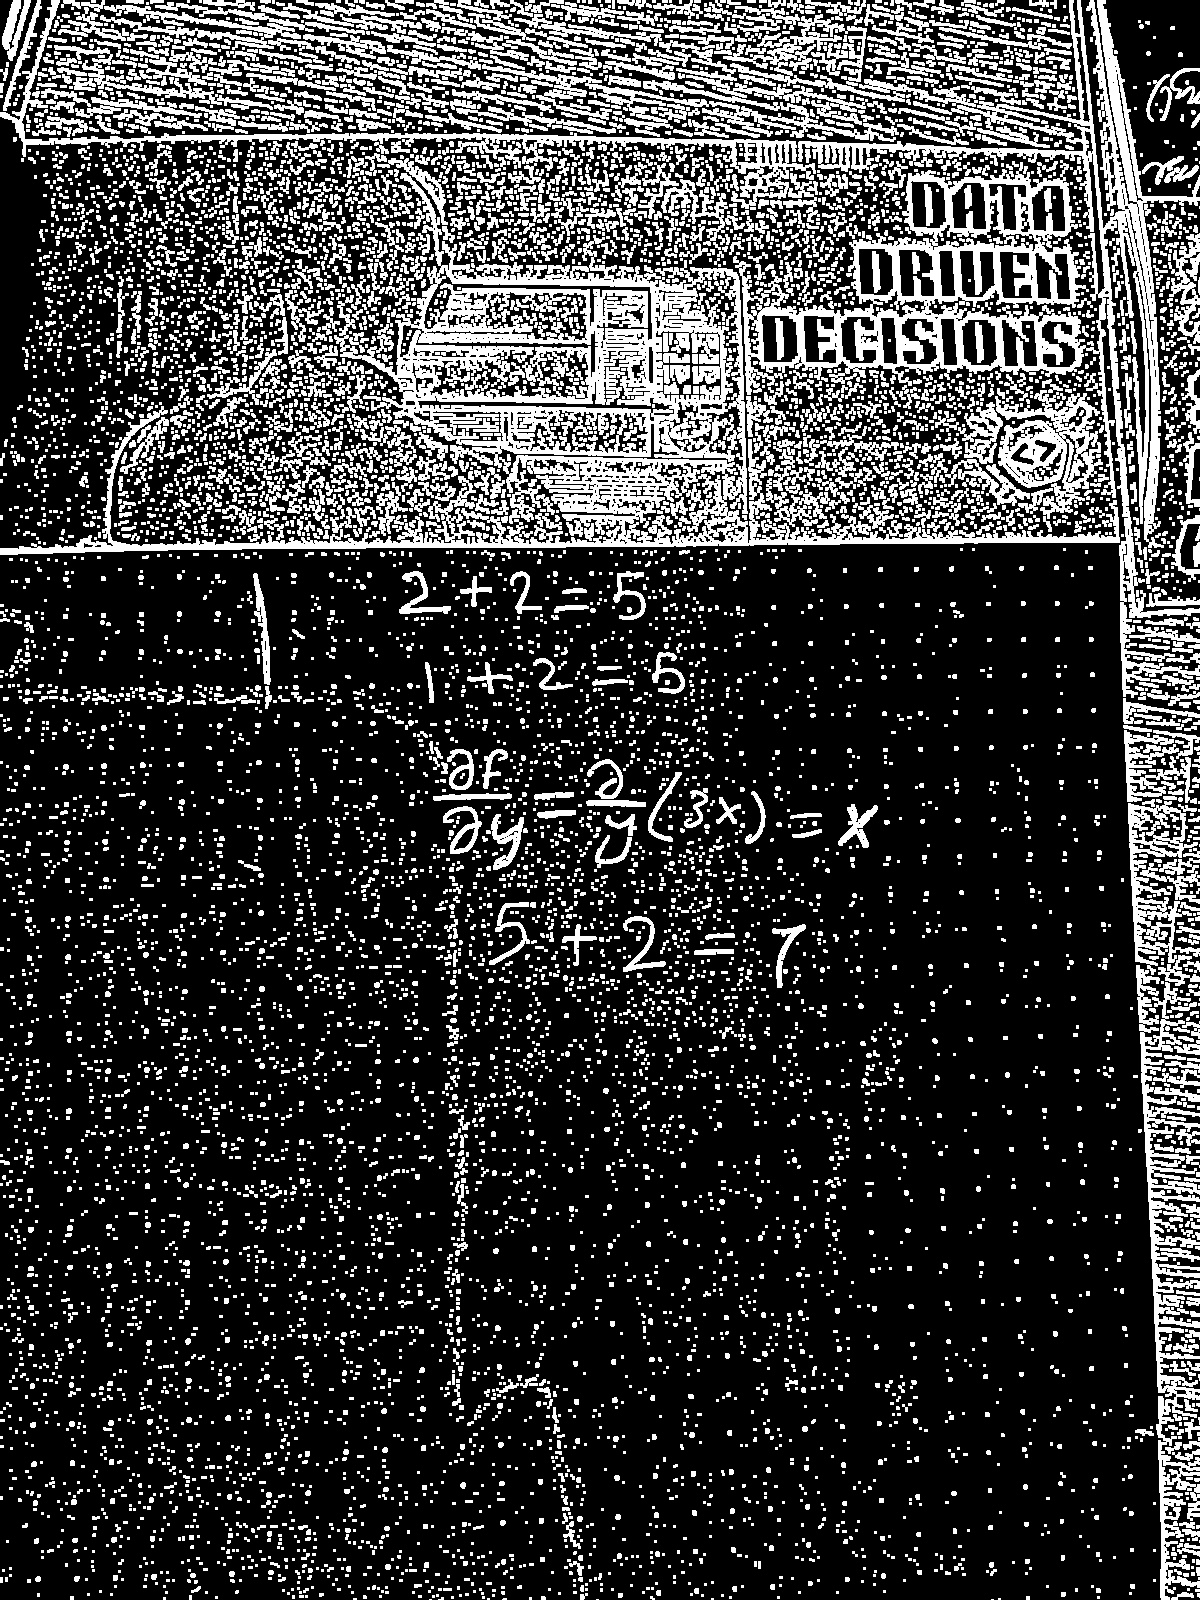 DATA
DRIVEN
DECISIONS
2 + 2 = 5
1 + 2 = 5
∂f/∂y = ∂/y (3x) = x
5 + 2 = 7